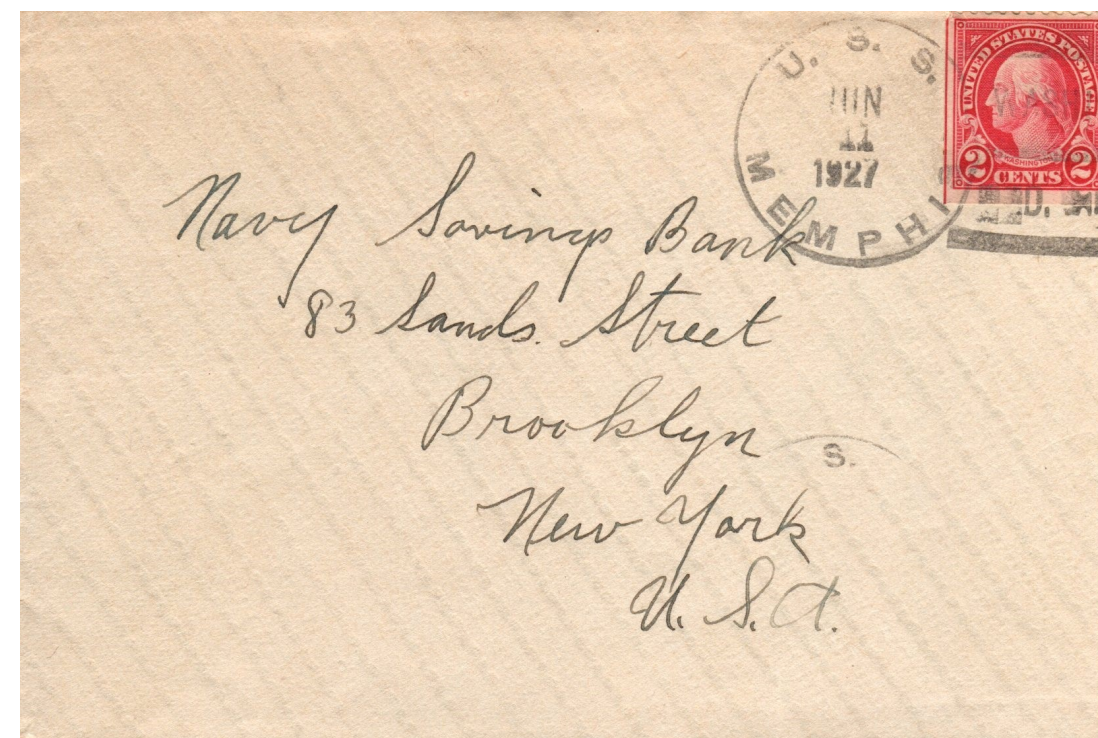 U. S. S.
MEMPHIS
JUN
11
1927
UNITED STATES POSTAGE
WASHINGTON
2 CENTS 2
WASH
D.
Navy Savings Bank
83 Sands. Street
Brooklyn
New York
U. S. A.
S.